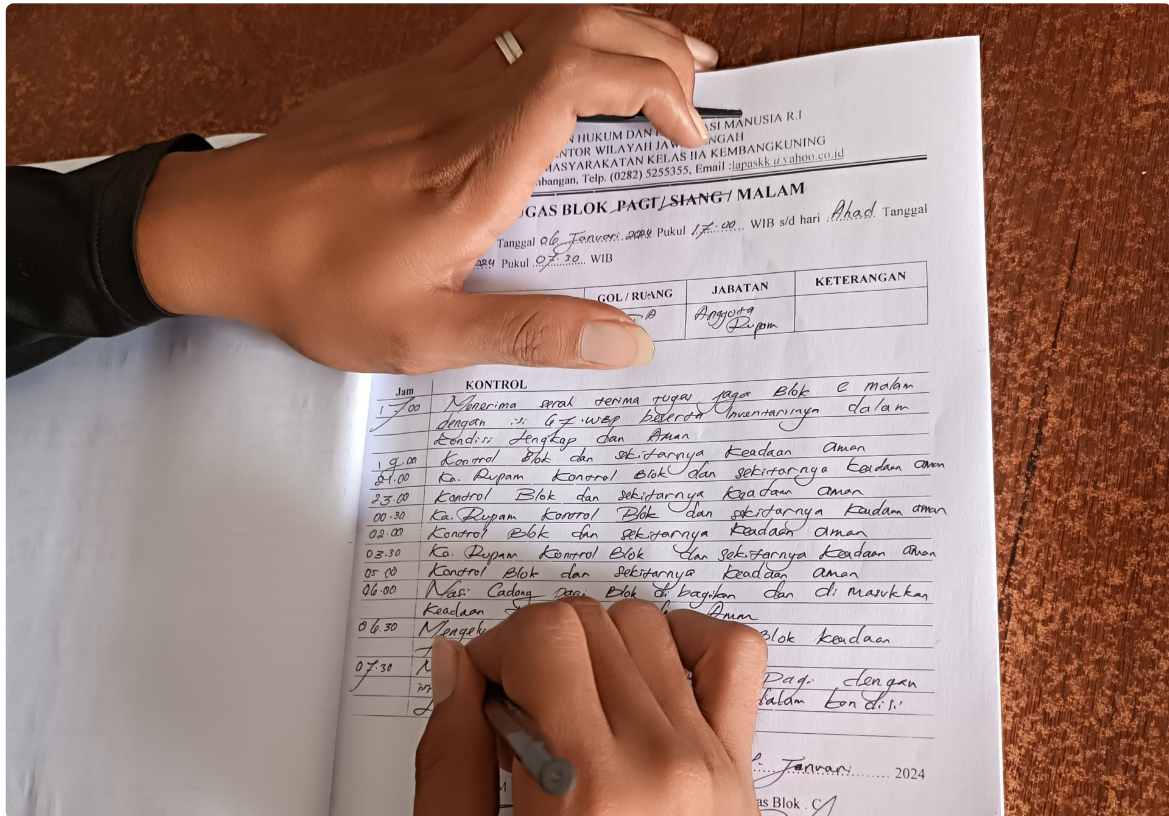 N HUKUM DAN ASI MANUSIA R.I
NTOR WILAYAH JAWA TENGAH
MASYARAKATAN KELAS IIA KEMBANGKUNING
mbangan, Telp. (0282) 5255355, Email :lapaskk@yahoo.co.id
UGAS BLOK PAGI / SIANG / MALAM
Tanggal 06 Januari 2024 Pukul 17.00 WIB s/d hari Ahad Tanggal
Pukul 07.30 WIB
GOL / RUANG JABATAN KETERANGAN
Anggota
Rupam
Jam KONTROL
17.00 Menerima serah terima tugas jaga Blok C malam
dengan isi 67 WBP beserta Inventarisnya dalam
kondisi lengkap dan Aman
19.00 Kontrol Blok dan sekitarnya Keadaan aman
21.00 Ka. Rupam Kontrol Blok dan sekitarnya Keadaan aman
23.00 Kontrol Blok dan sekitarnya Keadaan aman
00.30 Ka. Rupam Kontrol Blok dan sekitarnya Keadaan aman
02.00 Kontrol Blok dan sekitarnya Keadaan aman
03.30 Ka. Rupam Kontrol Blok dan sekitarnya Keadaan aman
05.00 Kontrol Blok dan sekitarnya Keadaan aman
06.00 Nasi Cadong pagi Blok di bagikan dan di masukkan
Keadaan Aman
06.30 Blok keadaan
07.30 Pagi dengan
dalam kondisi
Januari 2024
as Blok . C